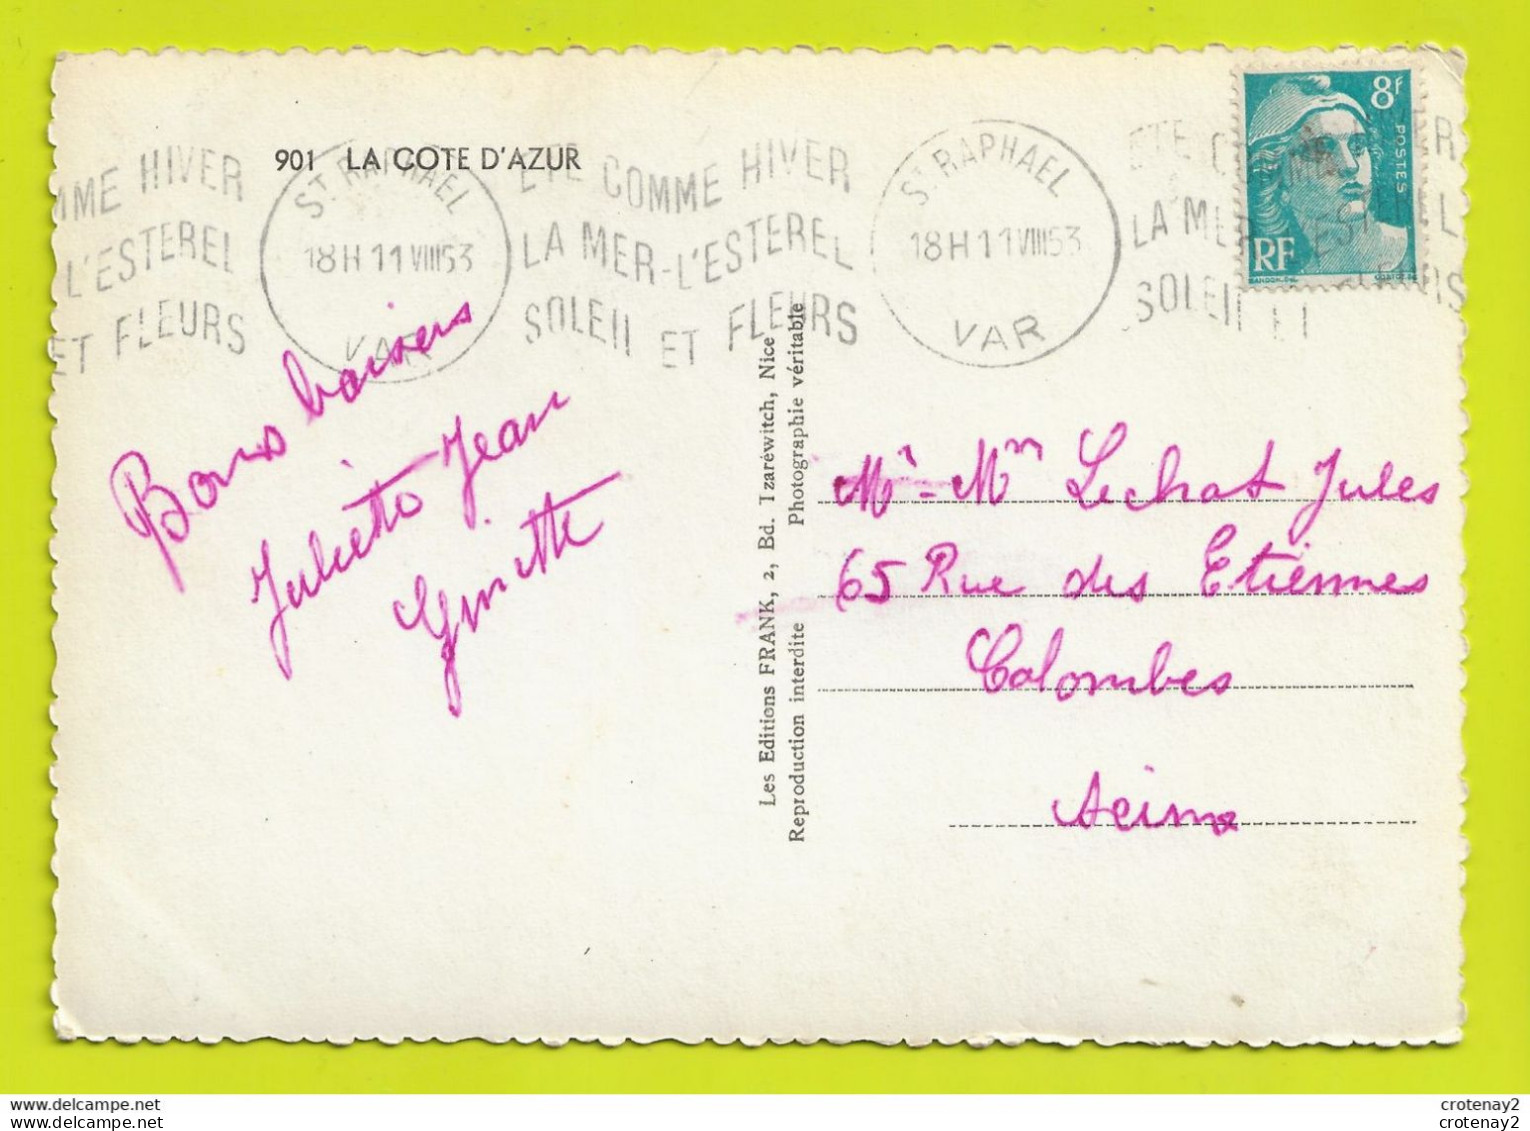 901 LA COTE D'AZUR
MME HIVER
L'ESTEREL
ET FLEURS
ST RAPHAEL
18H 11 VIII 53
VAR
ETE COMME HIVER
LA MER-L'ESTEREL
SOLEIL ET FLEURS
ST RAPHAEL
18H 11 VIII 53
VAR
ETE
LA MER ESTEREL
SOLEIL ET
8F
POSTES
RF
Bons baisers
Juliette Jean
Ginette
Les Editions FRANK, 2, Bd. Izaréwitch, Nice
Reproduction interdite Photographie véritable
Mr - Mm Lechat Jules
65 Rue des Etiennes
Colombes
Seine
crotenay2
crotenay2
www.delcampe.net
www.delcampe.net